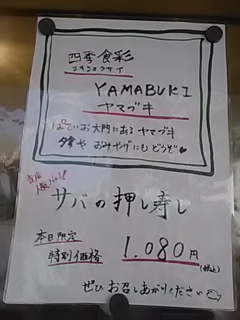 四季食彩
シキショクサイ
YAMABUKI
ヤマブキ
ぱてぃお大門にある ヤマブキ
夕食や おみやげにも どうぞ♥
当店
人気No.1
サバの押し寿し
本日限定
特別価格 1,080円
(税込)
ぜひ お召しあがりください